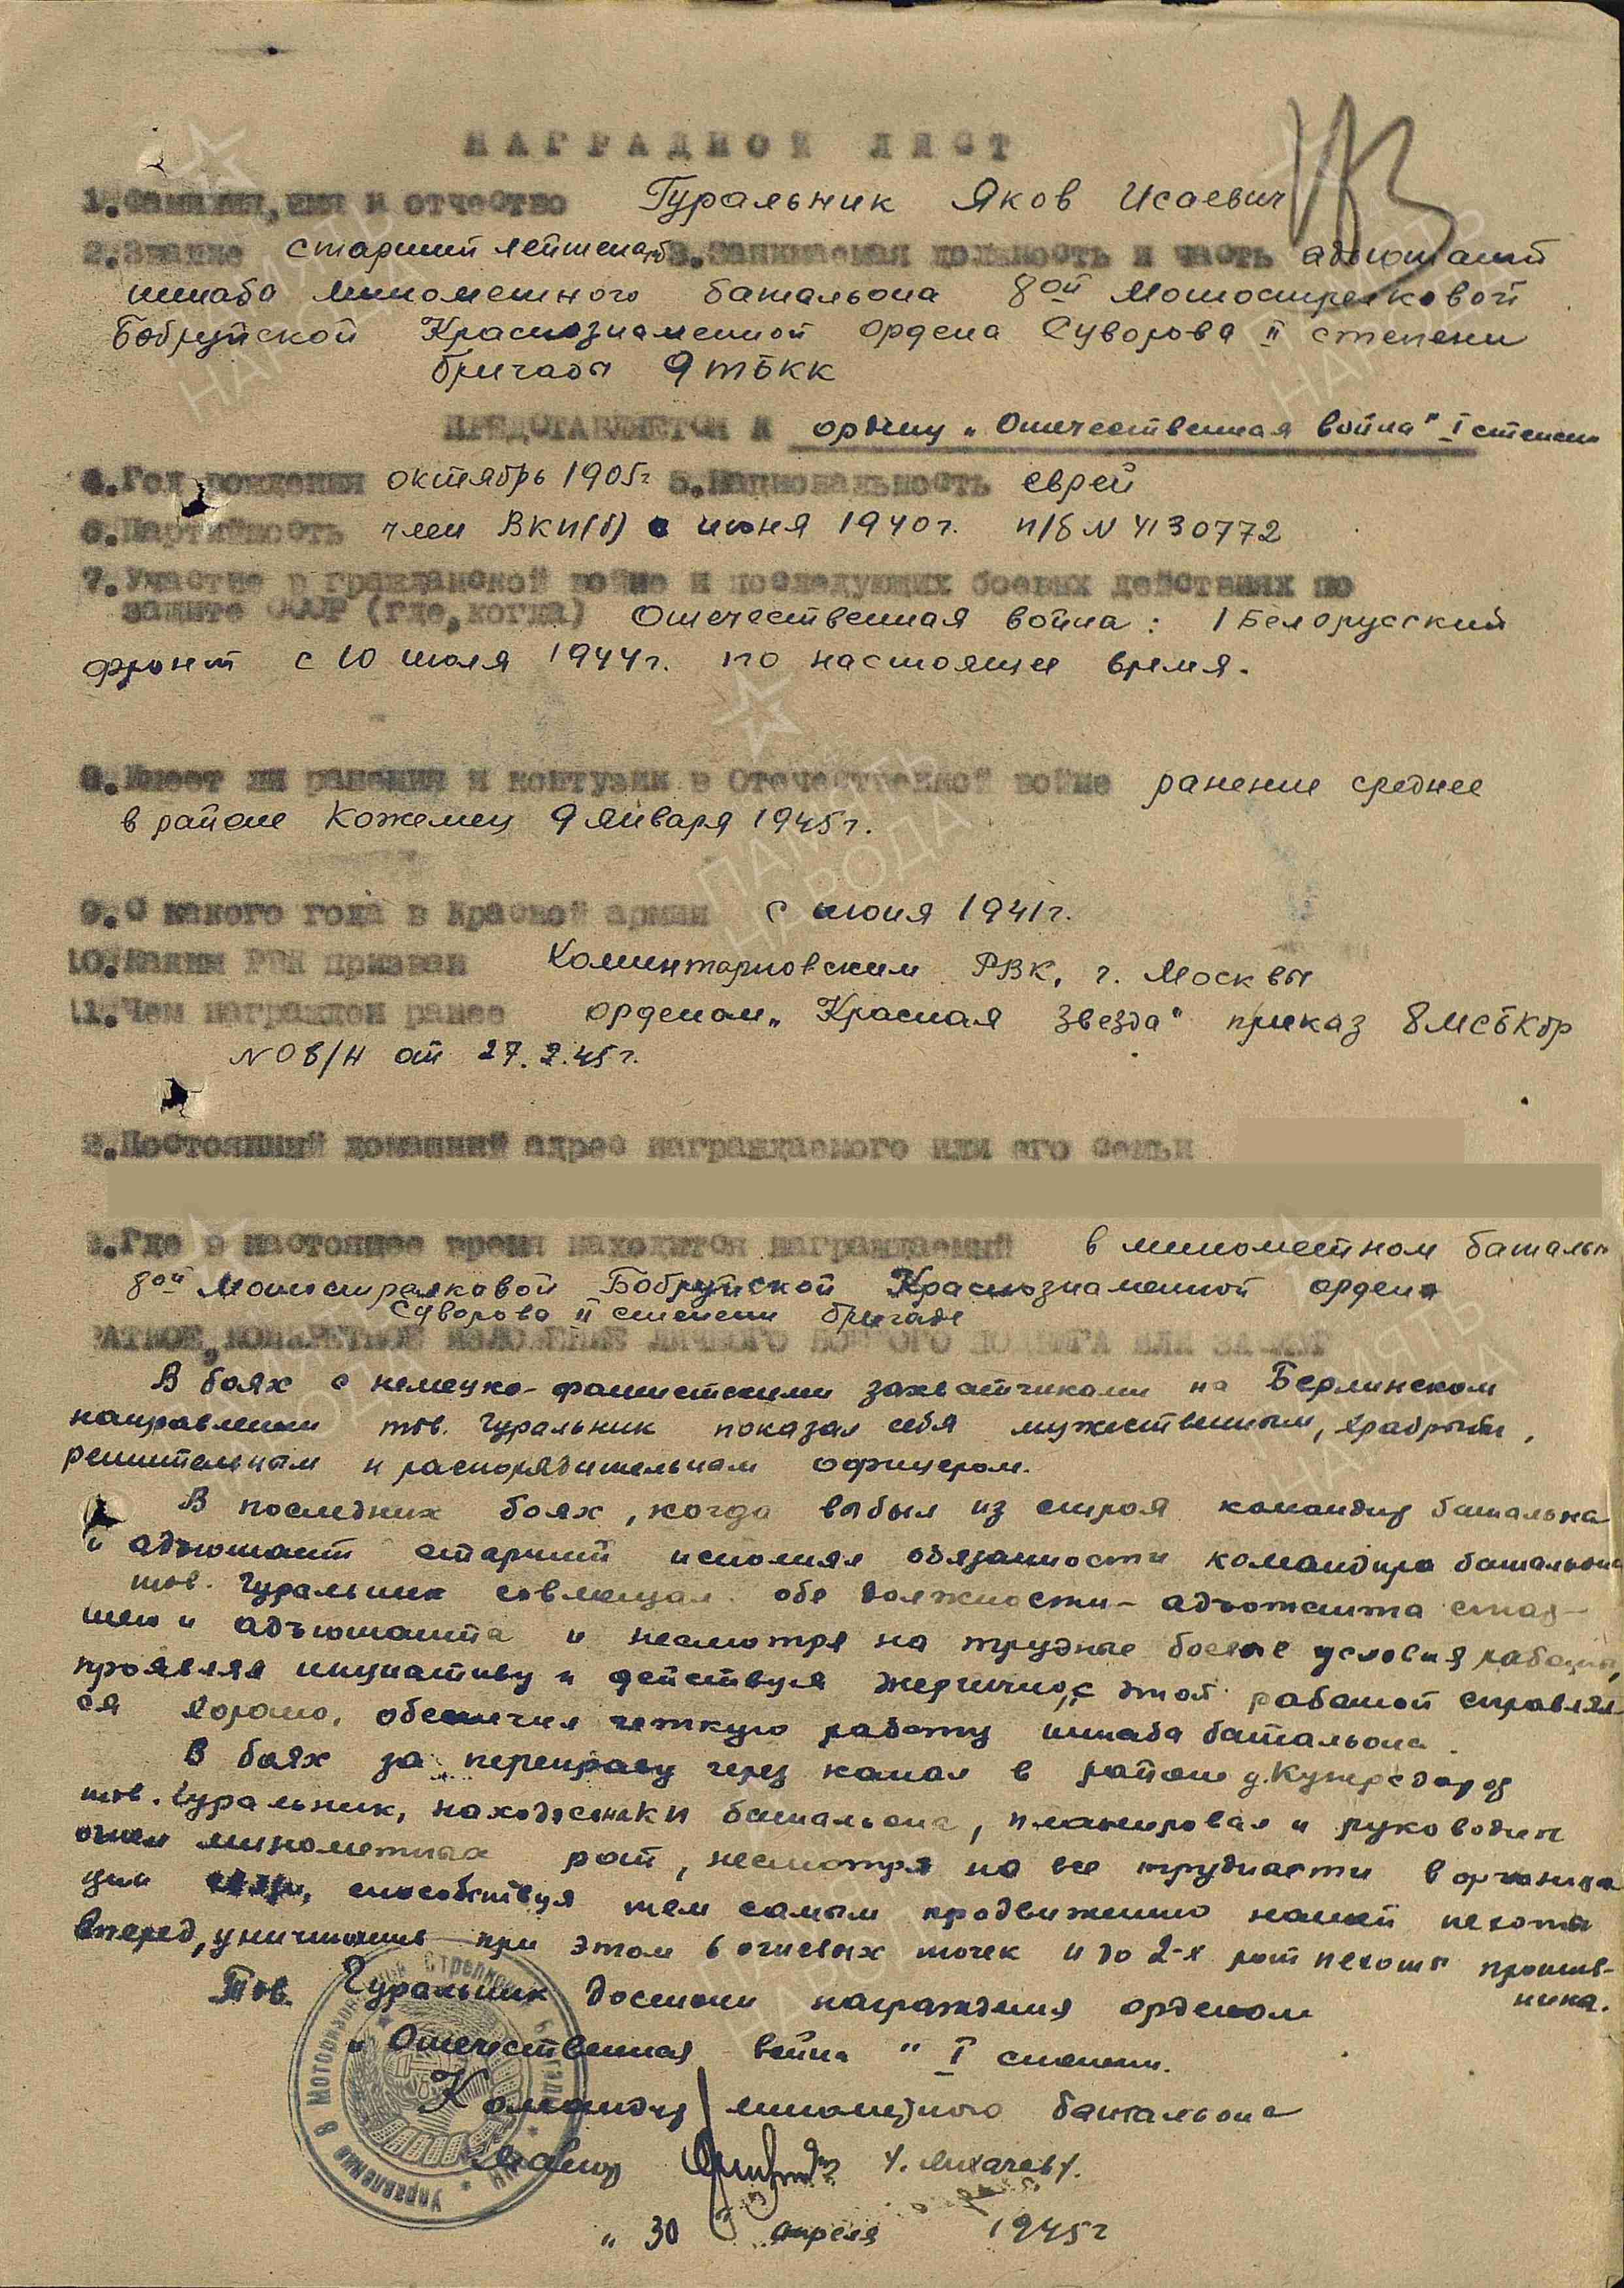 НАГРАДНОЙ ЛИСТ
1. Фамилия, имя и отчество Гуральник Яков Исаевич
2. Звание старший лейтенант 3. Занимаемая должность и часть адъютант
штаба минометного батальона 8ой Мотострелковой
Бобруйской Краснознаменной ордена Суворова II степени
бригады 9 тБКК
ПРЕДСТАВЛЯЕТСЯ К ордену „Отечественная война" I степени
4. Год рождения октябрь 1905г 5. Национальность еврей
6. Партийность член ВКП(б) с июня 1940г. п/б N 4130772
7. Участие в гражданской войне и последующих боевых действиях по
защите СССР (где, когда) Отечественная война: 1 Белорусский
фронт с 10 июля 1944г. по настоящее время.
8. Имеет ли ранения и контузии в Отечественной войне ранение среднее
в районе Кожемец 9 января 1945г.
9. С какого года в Красной армии с июня 1941г.
10. Каким РВК призван Коминтерновским РВК, г. Москвы
11. Чем награжден ранее орденом „Красная звезда" приказ 8 МСБКбр
N 08/н от 27.2.45г.
2. Постоянный домашний адрес награждаемого или его семьи
3. Где в настоящее время находится награждаемый в минометном батальо
8ой Мотострелковой Бобруйской Краснознаменной ордена
Суворова II степени бригаде
РАТКОЕ, КОНКРЕТНОЕ ИЗЛОЖЕНИЕ ЛИЧНОГО БОЕВОГО ПОДВИГА ИЛИ ЗАСЛУГ
В боях с немецко-фашистскими захватчиками на Берлинском
направлении тов. Гуральник показал себя мужественным, храбрым,
решительным и распорядительным офицером.
В последних боях, когда выбыл из строя командир батальона
и адъютант старший исполнял обязанности командира батальона
тов. Гуральник совмещал обе должности - адъютанта стар-
шего и адъютанта и несмотря на трудные боевые условия работы,
проявляя инициативу и действуя энергично, с этой работой справлял-
ся хорошо, обеспечил четкую работу штаба батальона.
В боях за переправу через канал в районе д. Купередорф
тов. Гуральник, находясь на КП батальона, планировал и руководил
огнем минометных рот, несмотря на все трудности в организа
ции связи, способствуя тем самым продвижению нашей пехоты
вперед, уничтожив при этом 6 огневых точек и до 2-х рот пехоты против-
ника.
Тов. Гуральник достоин награждения орденом
„Отечественная война" I степени.
Командир минометного батальона
Майор /. Лихачев/.
„30 апреля 1945г
Управление 8 Моторизованной Стрелковой Бригады
ПАМЯТЬ НАРОДА
ПАМЯТЬ НАРОДА
ПАМЯТЬ НАРОДА
ПАМЯТЬ НАРОДА
ПАМЯТЬ НАРОДА
ПАМЯТЬ НАРОДА